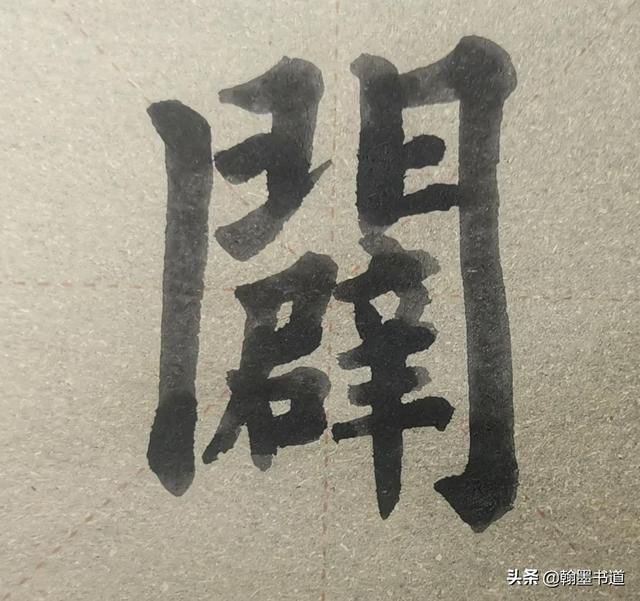 闢
头条 @翰墨书道